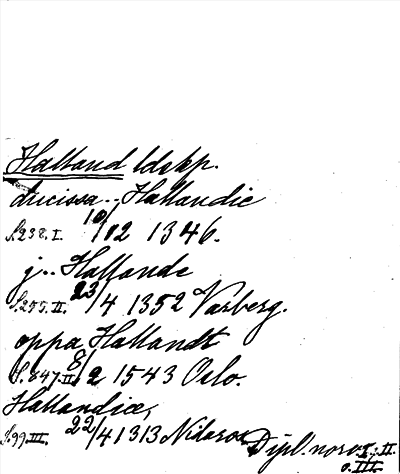 Halland ldskp.
ducissa .. Hallandie
S.238.I. 10/02 1346.
j .. Hallande
S.255.II. 23/4 1352 Varberg.
oppa Hallandt
S.847.II. 8/2 1543 Oslo.
Hallandice,
S.99.III. 22/4 1313 Nidaros
Dipl. norv. I. II.
o. III.